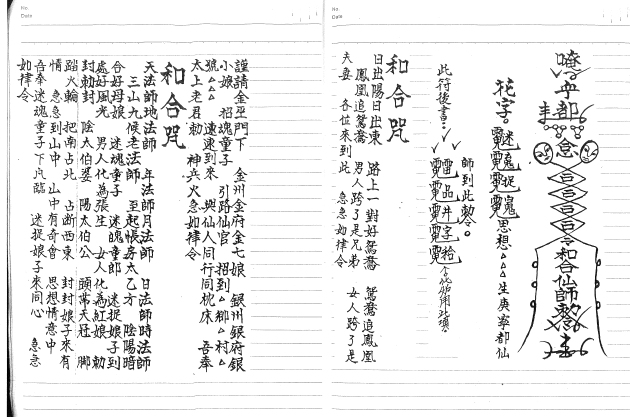 No.
Date
No.
Date
和合仙師
花字。
思想△△△生庚寧都仙
師到此勅令。
此符後書:
和合咒
日出陽日出東 路上一對好鴛鴦 鴛鴦追鳳凰
鳳凰追鴛鴦 男人跨了是兄弟 女人跨了是
夫妻 各位來到此 急急如律令
謹請金巫門下 金州金府金七娘 銀州銀府銀
小娘 招魂童子 引路仙官 招到△鄉△村△
號△△ 速速到來 與仙人同行同枕床 吾奉
太上老君勅 神兵火急如律令
和合咒
天法師地法師 年法師月法師 日法師時法師
三山九候老法師 至起帳房太乙方 陰陽暗
合好母娘 迷魂童子 迷魂童郎 迷捉娘子到
處好風光 男人化為張生 女人化為紅娘 勅
封勅封 陰太伯婆 陽太伯公 頭帶天冠 脚
踏火輪 把南占北 占斷西東 封封娘子來有
情 急急到山中 山中有奇會 思想情意中
吾奉迷魂童子下凡臨 迷捉娘子來同心 急急
如律令